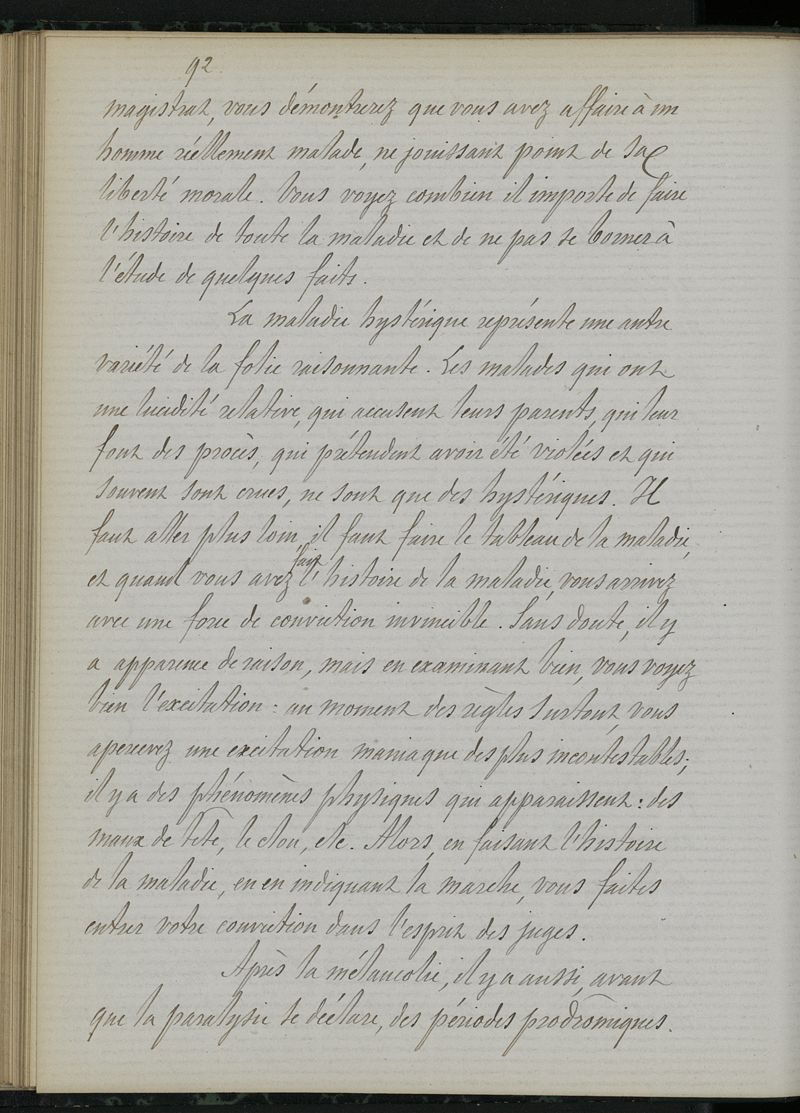 92
magistrat, vous démontrerez que vous avez affaire à un
homme réellement malade, ne jouissant point de sa
liberté morale. Vous voyez combien il importe de faire
l'histoire de toute la maladie et de ne pas se borner à
l'étude de quelques faits.
La maladie hystérique représente une autre
variété de la folie raisonnante. Les malades qui ont
une lucidité relative, qui accusent leurs parents, qui leur
font des procès, qui prétendent avoir été violées et qui
souvent sont crues, ne sont que des hystériques. Il
faut aller plus loin, il faut faire le tableau de la maladie,
et quand vous avez fait l'histoire de la maladie, vous arrivez
avec une force de conviction invincible. Sans doute, il y
a apparence de raison, mais en examinant bien, vous voyez
bien l'excitation : au moment des règles surtout, vous
apercevez une excitation maniaque des plus incontestables ;
il y a des phénomènes physiques qui apparaissent : des
maux de tête, le clou, etc. Alors, en faisant l'histoire
de la maladie, en en indiquant la marche, vous faites
entrer votre conviction dans l'esprit des juges.
Après la mélancolie, il y a aussi, avant
que la paralysie se déclare, des périodes prodromiques.